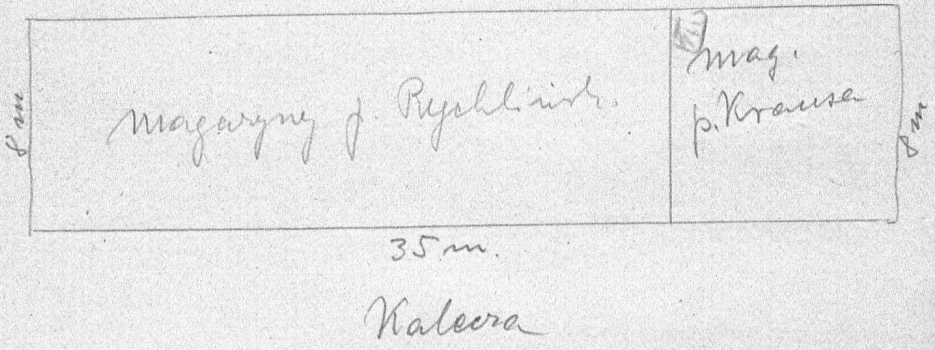 8 m
Magazyny p. Rychlińsk.
mag.
p. Krausa
8 m
35 m.